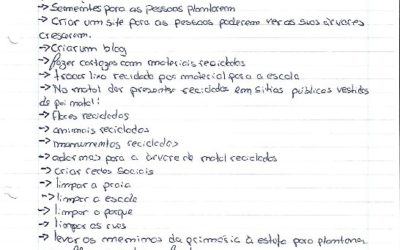 → Sementes para as pessoas plantarem
→ Criar um site para as pessoas poderem ver as suas árvores
crescerem.
→ Criar um blog
→ fazer cartazes com materiais reciclados
→ trocar lixo reciclado por material para a escola
→ No natal dar presentes reciclados em sitios públicos vestidos
de pai natal!
→ flores recicladas
→ animais reciclados
→ monumentos reciclados
→ adornos para a árvore de natal reciclados
→ criar redes sociais
→ limpar a praia
→ limpar a escola
→ limpar o parque
→ limpar as ruas
→ levar os meninos da primária à estufa para plantarem